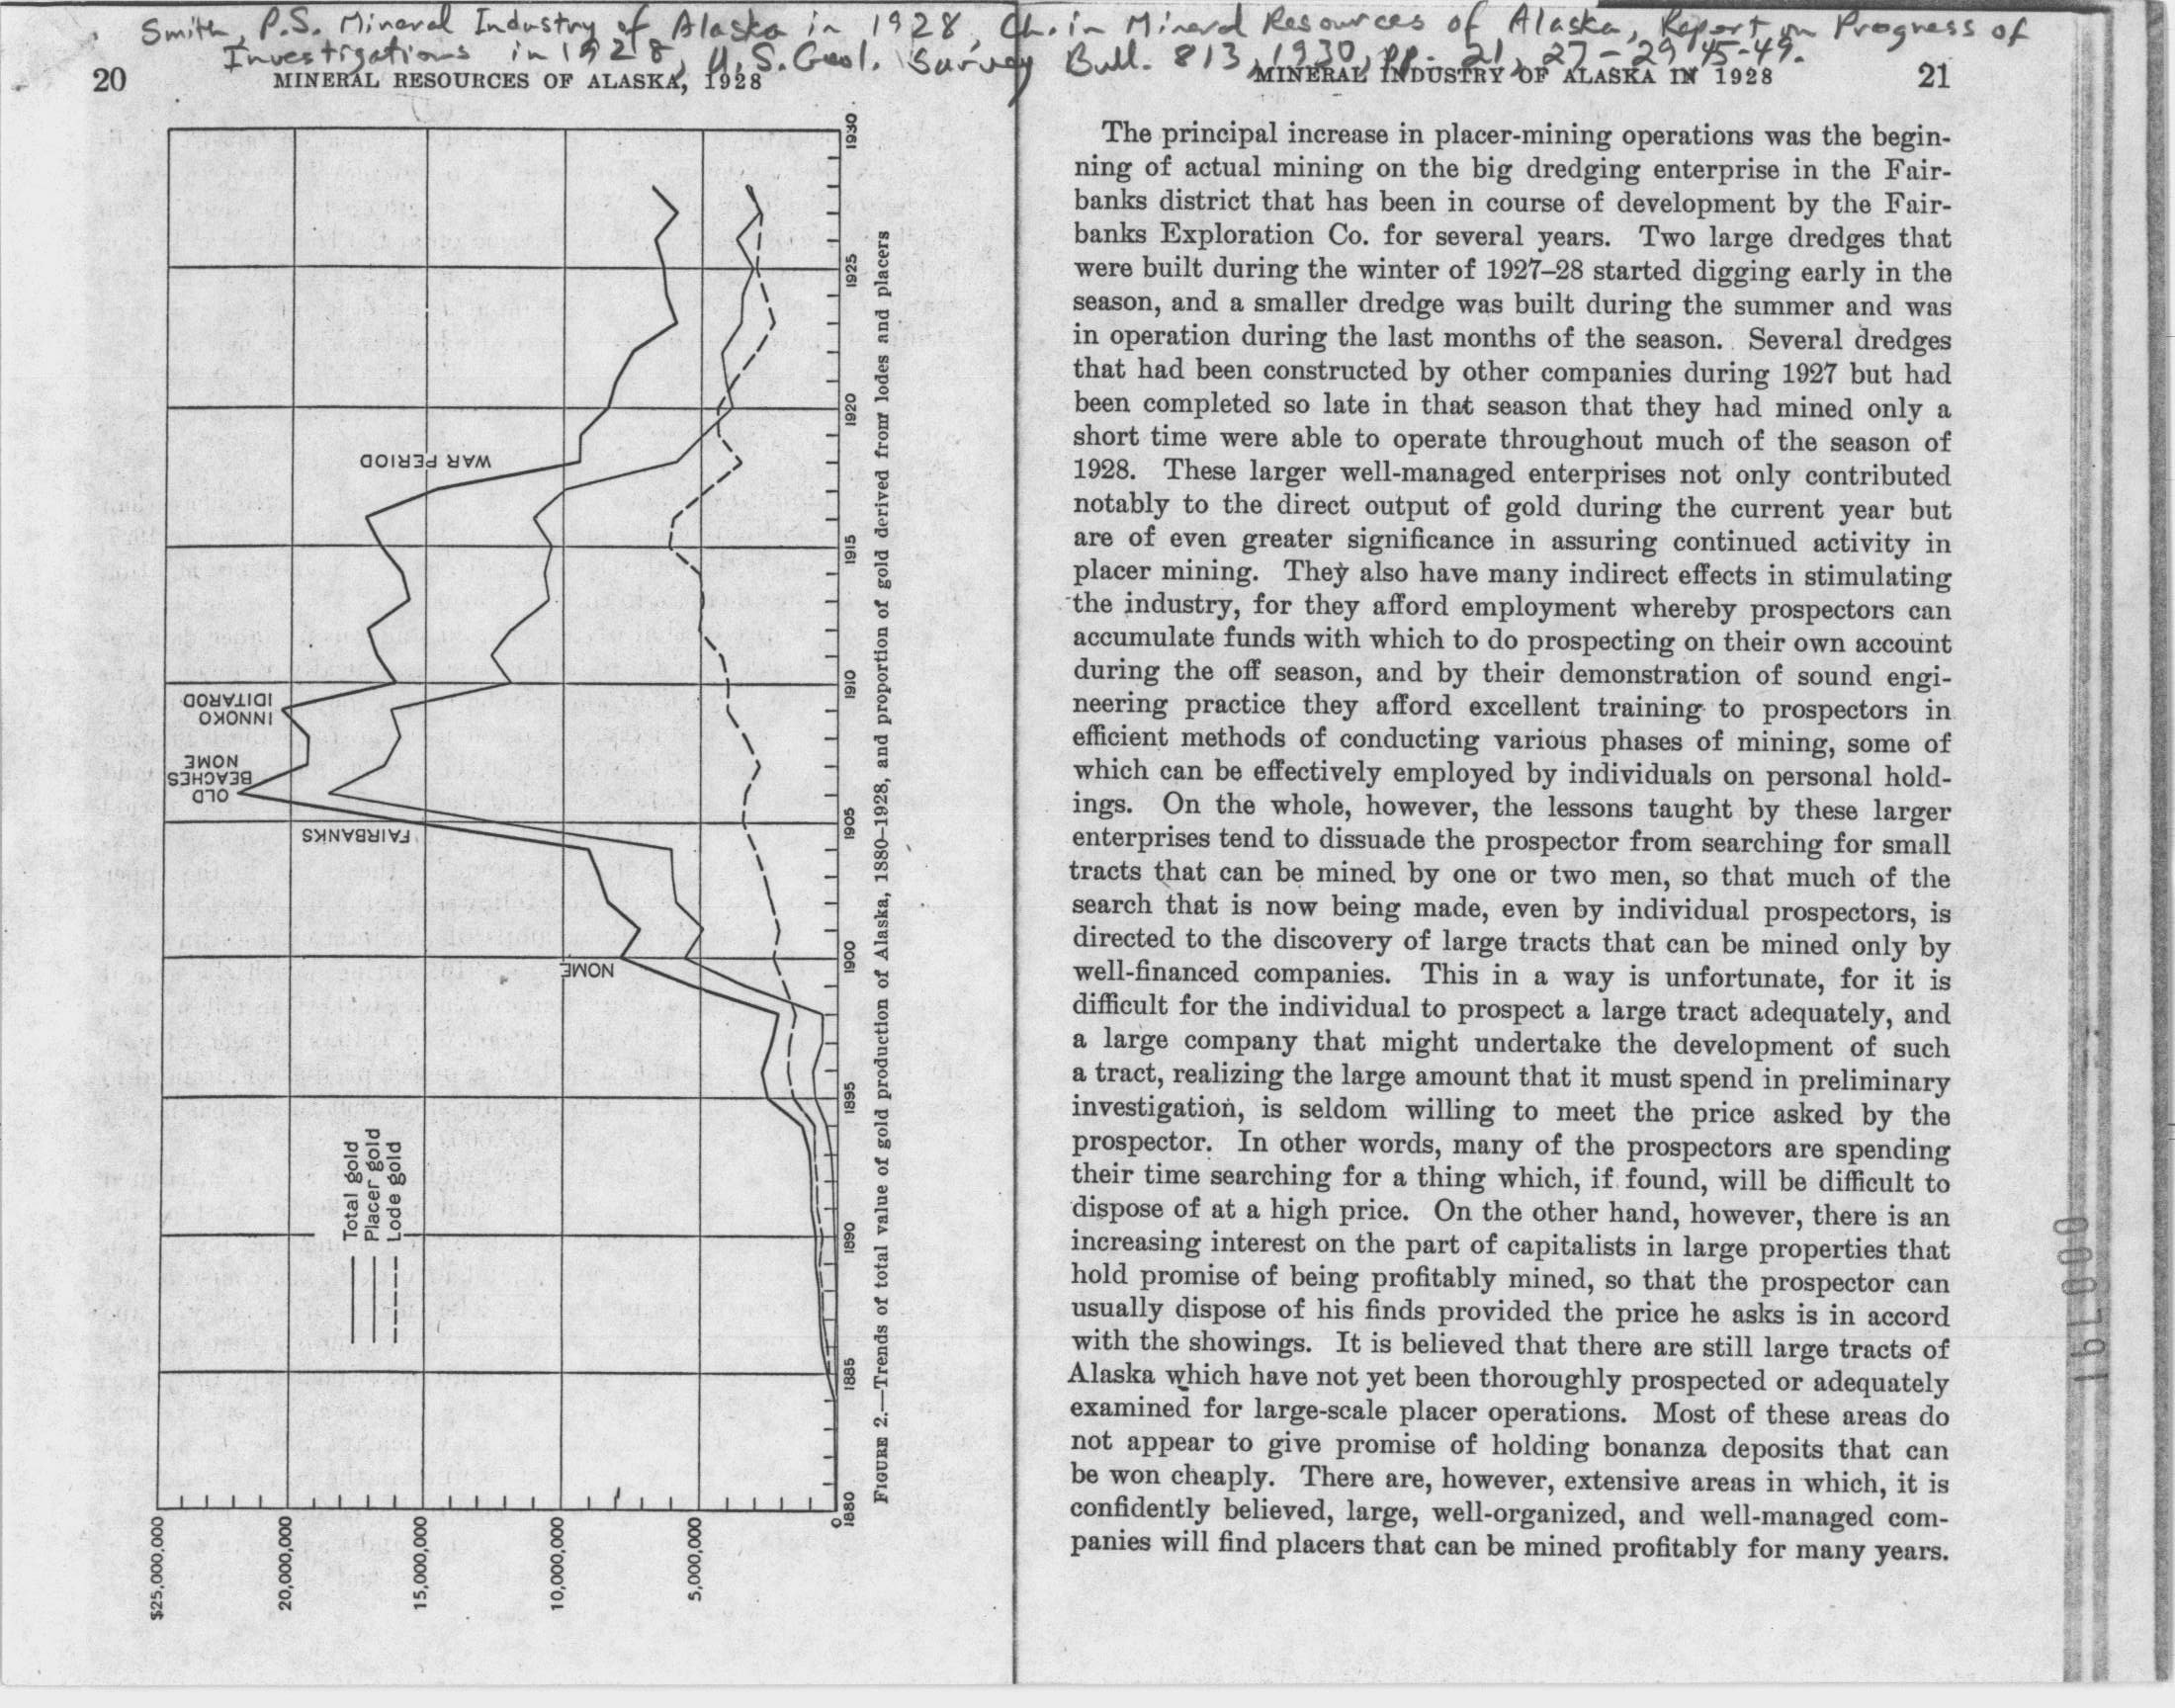 Smith, P.S. Mineral Industry of Alaska in 1928, Ch. in Mineral Resources of Alaska, Report on Progress of
Investigations in 1928, U.S. Geol. Survey Bull. 813, 1930, pp. 21, 27-29, 45-49.
20
MINERAL RESOURCES OF ALASKA, 1928
$25,000,000
20,000,000
15,000,000
10,000,000
5,000,000
0
1880
1885
1890
1895
1900
1905
1910
1915
1920
1925
1930
Total gold
Placer gold
Lode gold
NOME
FAIRBANKS
OLD
BEACHES
NOME
INNOKO
IDITAROD
WAR PERIOD
FIGURE 2.—Trends of total value of gold production of Alaska, 1880–1928, and proportion of gold derived from lodes and placers
MINERAL INDUSTRY OF ALASKA IN 1928
21
The principal increase in placer-mining operations was the begin-
ning of actual mining on the big dredging enterprise in the Fair-
banks district that has been in course of development by the Fair-
banks Exploration Co. for several years. Two large dredges that
were built during the winter of 1927–28 started digging early in the
season, and a smaller dredge was built during the summer and was
in operation during the last months of the season. Several dredges
that had been constructed by other companies during 1927 but had
been completed so late in that season that they had mined only a
short time were able to operate throughout much of the season of
1928. These larger well-managed enterprises not only contributed
notably to the direct output of gold during the current year but
are of even greater significance in assuring continued activity in
placer mining. They also have many indirect effects in stimulating
the industry, for they afford employment whereby prospectors can
accumulate funds with which to do prospecting on their own account
during the off season, and by their demonstration of sound engi-
neering practice they afford excellent training to prospectors in
efficient methods of conducting various phases of mining, some of
which can be effectively employed by individuals on personal hold-
ings. On the whole, however, the lessons taught by these larger
enterprises tend to dissuade the prospector from searching for small
tracts that can be mined by one or two men, so that much of the
search that is now being made, even by individual prospectors, is
directed to the discovery of large tracts that can be mined only by
well-financed companies. This in a way is unfortunate, for it is
difficult for the individual to prospect a large tract adequately, and
a large company that might undertake the development of such
a tract, realizing the large amount that it must spend in preliminary
investigation, is seldom willing to meet the price asked by the
prospector. In other words, many of the prospectors are spending
their time searching for a thing which, if found, will be difficult to
dispose of at a high price. On the other hand, however, there is an
increasing interest on the part of capitalists in large properties that
hold promise of being profitably mined, so that the prospector can
usually dispose of his finds provided the price he asks is in accord
with the showings. It is believed that there are still large tracts of
Alaska which have not yet been thoroughly prospected or adequately
examined for large-scale placer operations. Most of these areas do
not appear to give promise of holding bonanza deposits that can
be won cheaply. There are, however, extensive areas in which, it is
confidently believed, large, well-organized, and well-managed com-
panies will find placers that can be mined profitably for many years.
000791